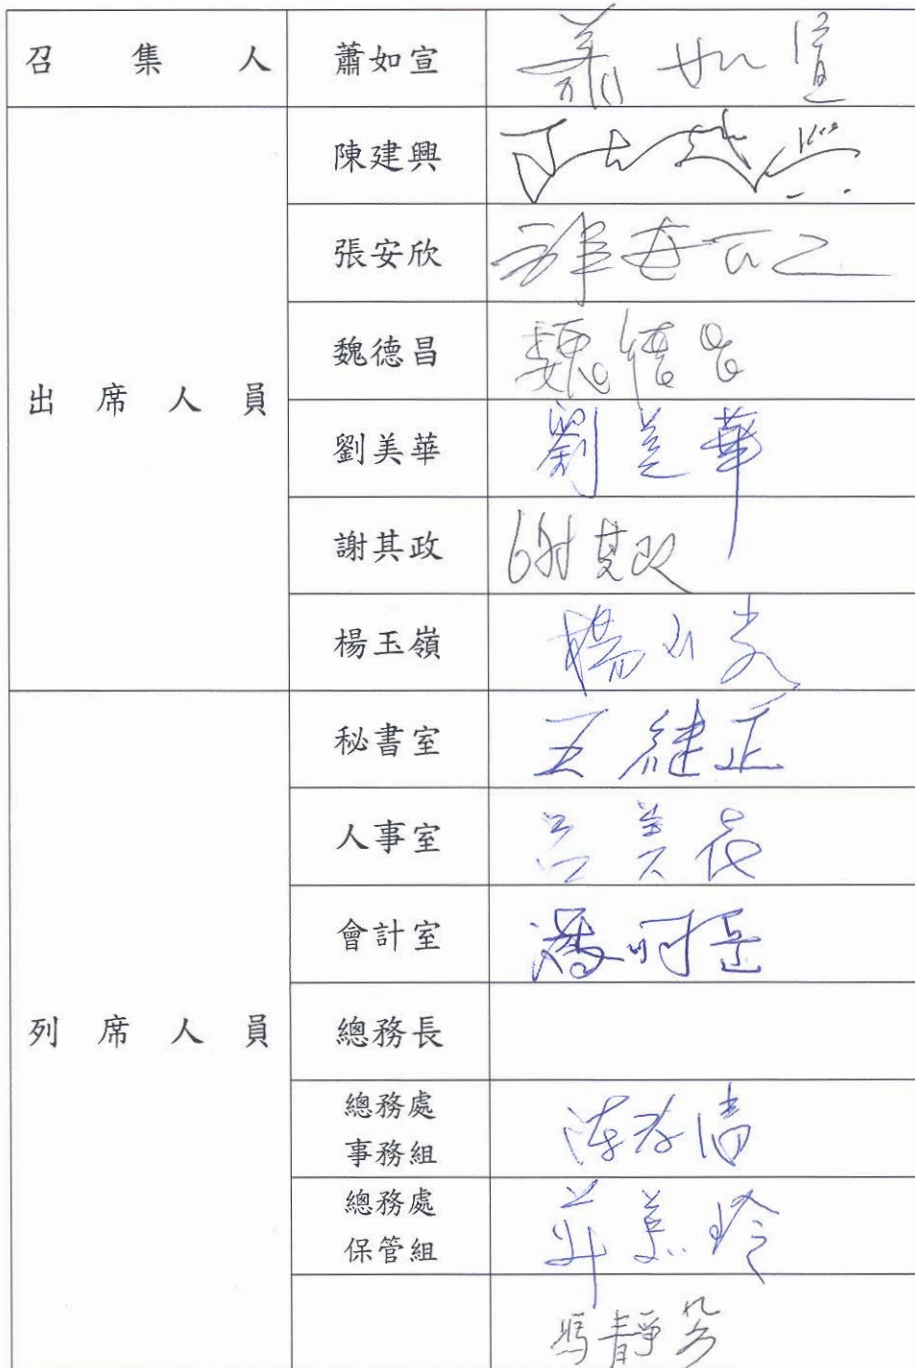 召集人 蕭如宣 蕭如宣
出席人員
陳建興
張安欣
魏德昌 魏德昌
劉美華 劉美華
謝其政 謝其政
楊玉嶺 楊
列席人員
秘書室 王継正
人事室 呂美
會計室 潘明
總務長
總務處
事務組 清
總務處
保管組 玲
馮靜芬